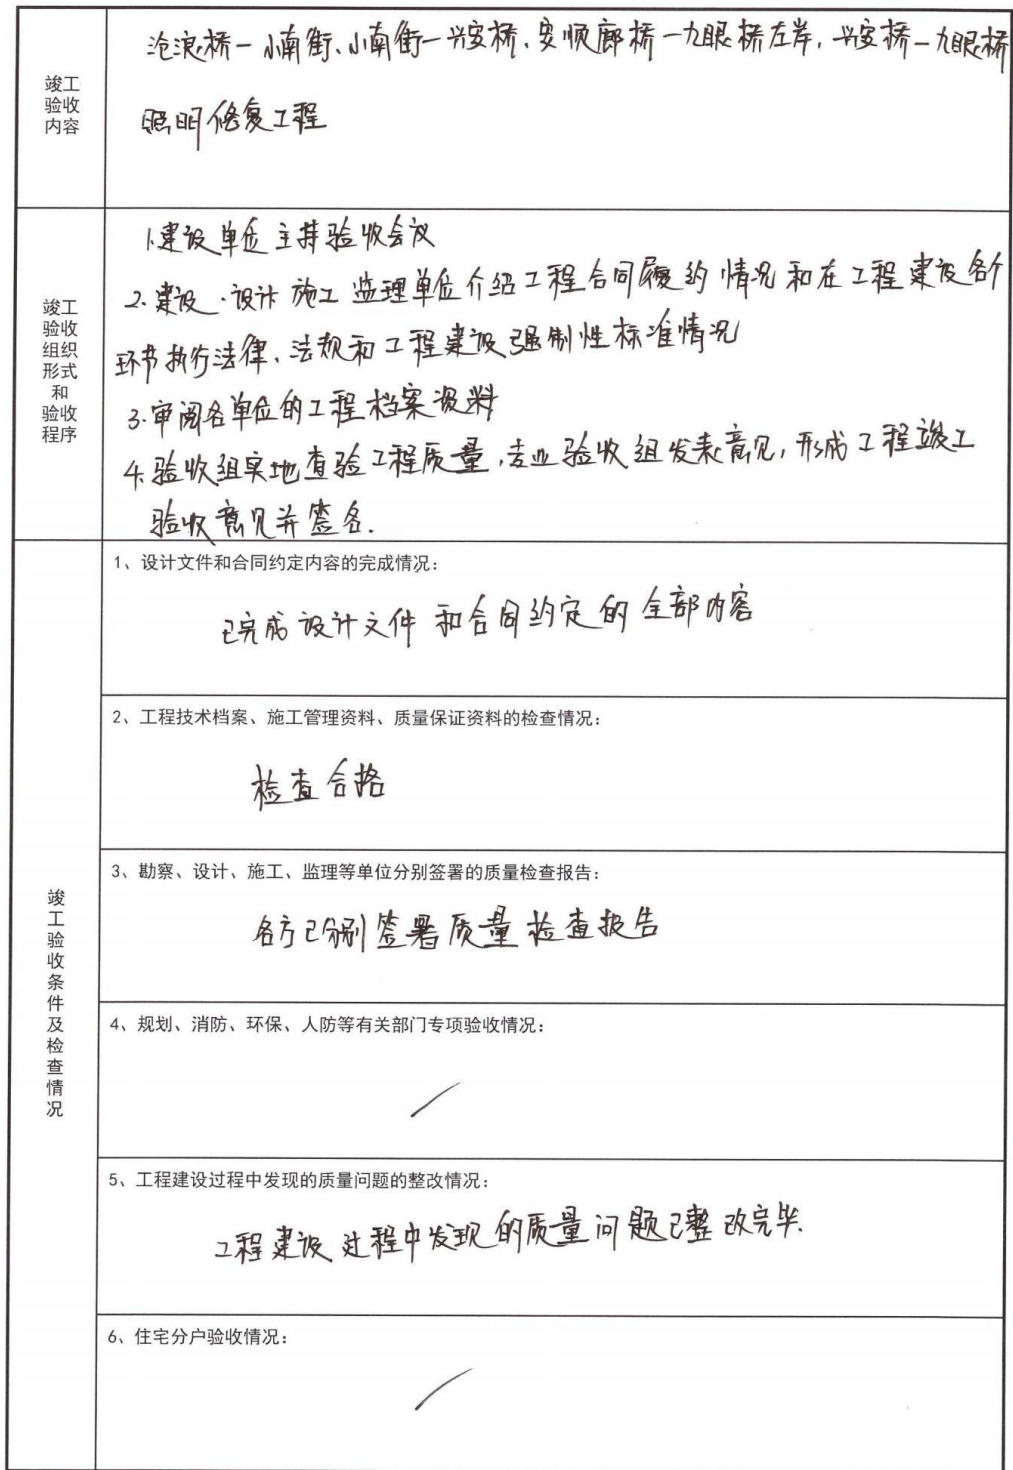 竣工
验收
内容
沧浪桥一小南街、小南街一兴安桥、安顺廊桥一九眼桥左岸,兴安桥一九眼桥
照明修复工程
竣工
验收
组织
形式
和
验收
程序
1.建设单位主持验收会议
2.建设.设计 施工 监理单位介绍工程合同履约情况和在工程建设各个
环节执行法律、法规和工程建设强制性标准情况
3.审阅各单位的工程档案资料
4.验收组实地查验工程质量,专业验收组发表意见,形成工程竣工
验收意见并签名.
竣工验收条件及检查情况
1、设计文件和合同约定内容的完成情况:
已完成设计文件和合同约定的全部内容
2、工程技术档案、施工管理资料、质量保证资料的检查情况:
检查合格
3、勘察、设计、施工、监理等单位分别签署的质量检查报告:
各方已分别签署质量检查报告
4、规划、消防、环保、人防等有关部门专项验收情况:
5、工程建设过程中发现的质量问题的整改情况:
工程建设过程中发现的质量问题已整改完毕.
6、住宅分户验收情况: